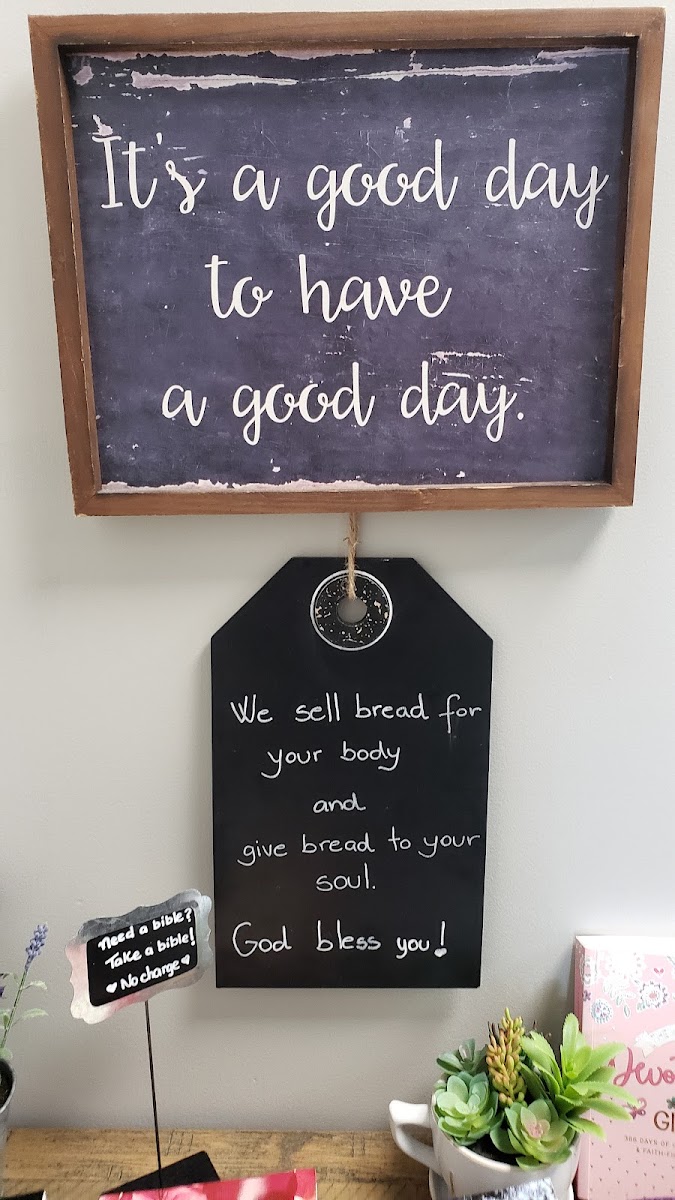 It's a good day
to have
a good day.
We sell bread for
your body
and
give bread to your
soul.
God bless you!
Need a bible?
Take a bible!
♥ No charge ♥